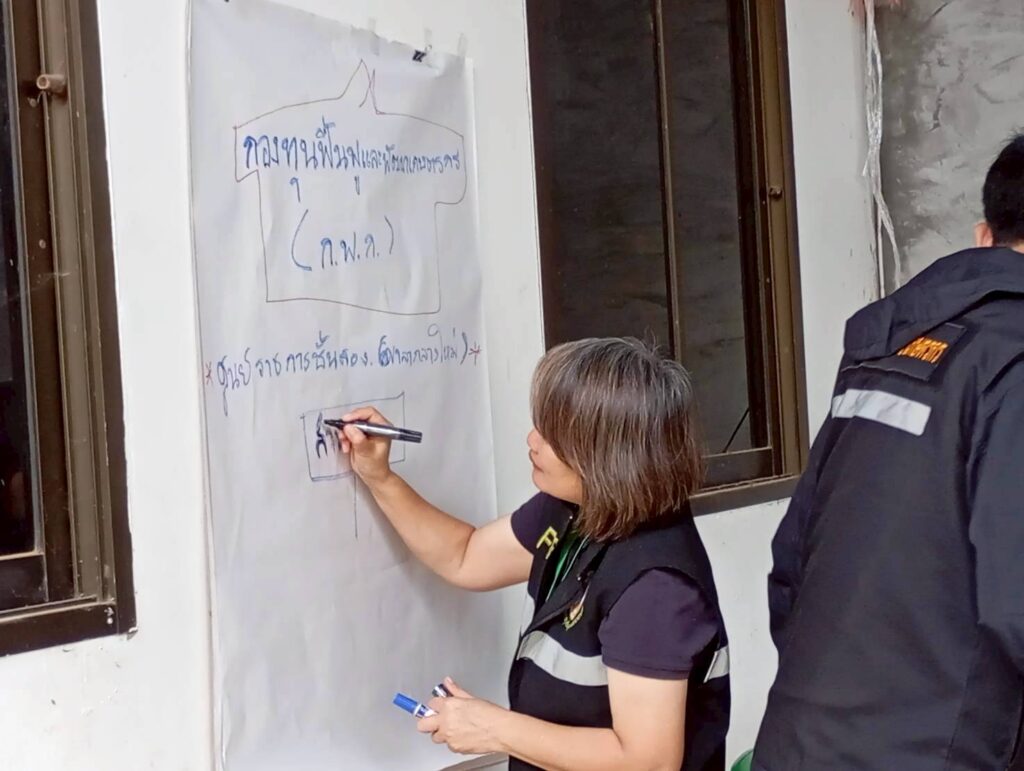 กองทุนฟื้นฟูและพัฒนาเกษตรกร
(ก.ฟ.ก.)
*ศูนย์ราชการชั้นสอง. (ศาลากลางใหม่)*